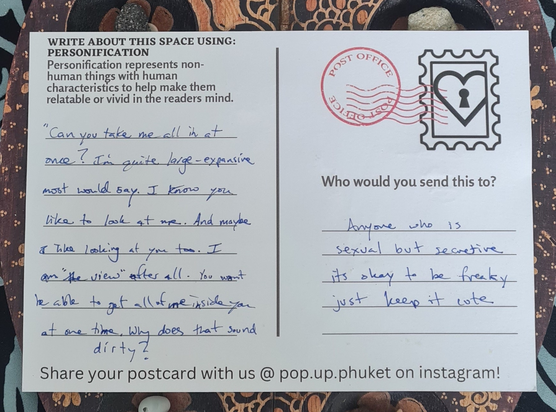 WRITE ABOUT THIS SPACE USING:
PERSONIFICATION
Personification represents non-
human things with human
characteristics to help make them
relatable or vivid in the readers mind.
"Can you take me all in at
once? I'm quite large-expansive
most would say. I know you
like to look at me. And maybe
I like looking at you too. I
am "the view" after all. You won't
be able to get all of me inside you
at one time. Why does that sound
dirty?
POST OFFICE
POST OFFICE
Who would you send this to?
Anyone who is
sexual but secretive
its okay to be freaky
just keep it cute
Share your postcard with us @ pop.up.phuket on instagram!